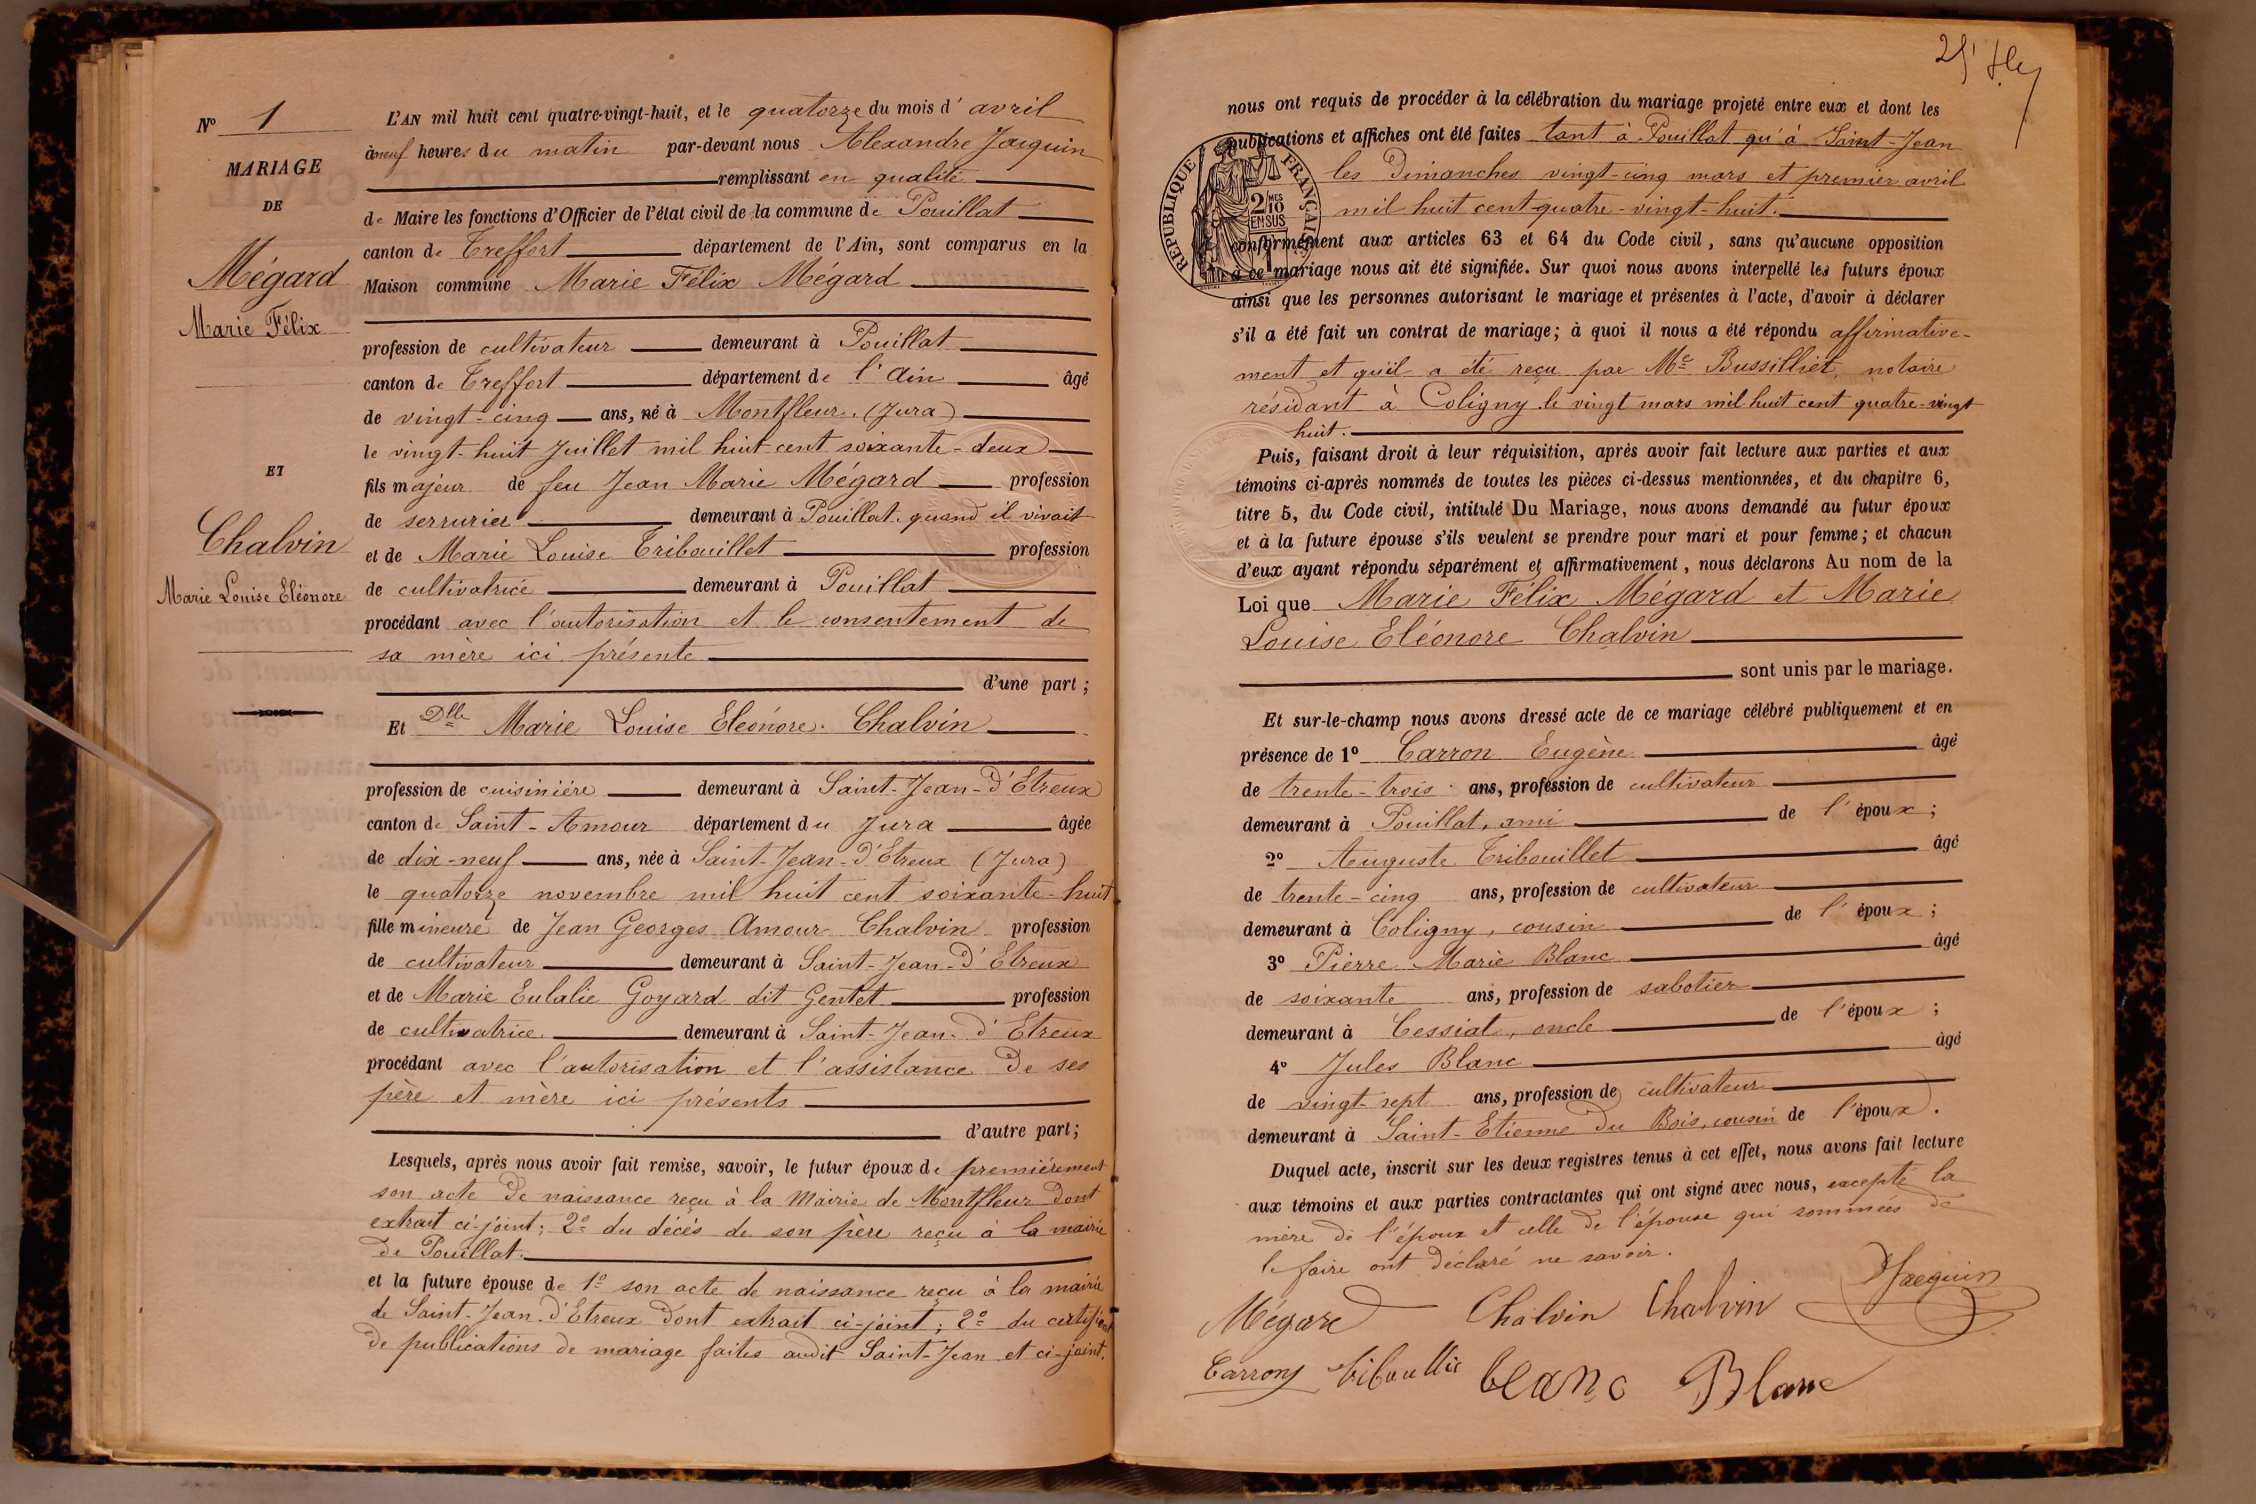 Nº 1
MARIAGE
DE
Mégard
Marie Félix
ET
Chalvin
Marie Louise Eléonore
L'AN mil huit cent quatre-vingt-huit, et le quatorze du mois d'avril
à neuf heures du matin par-devant nous Alexandre Jacquin
remplissant en qualité
de Maire les fonctions d'Officier de l'état civil de la commune de Pouillat
canton de Treffort département de l'Ain, sont comparus en la
Maison commune Marie Félix Mégard
profession de cultivateur demeurant à Pouillat
canton de Treffort département de l'Ain âgé
de vingt-cinq ans, né à Montfleur (Jura)
le vingt-huit Juillet mil huit cent soixante-deux
fils majeur de feu Jean Marie Mégard profession
de serrurier demeurant à Pouillat quand il vivait
et de Marie Louise Tribouillet profession
de cultivatrice demeurant à Pouillat
procédant avec l'autorisation et le consentement de
sa mère ici présente
d'une part ;
Et Dlle Marie Louise Eléonore Chalvin
profession de cuisinière demeurant à Saint-Jean-d'Etreux
canton de Saint-Amour département du Jura âgée
de dix-neuf ans, née à Saint-Jean-d'Etreux (Jura)
le quatorze novembre mil huit cent soixante-huit
fille mineure de Jean Georges Amour Chalvin profession
de cultivateur demeurant à Saint-Jean-d'Etreux
et de Marie Eulalie Goyard dit Gentet profession
de cultivatrice demeurant à Saint-Jean-d'Etreux
procédant avec l'autorisation et l'assistance de ses
père et mère ici présents
d'autre part ;
Lesquels, après nous avoir fait remise, savoir, le futur époux de premièrement
son acte de naissance reçu à la Mairie de Montfleur dont
extrait ci-joint ; 2º du décès de son père reçu à la mairie
de Pouillat.
et la future épouse de 1º son acte de naissance reçu à la mairie
de Saint-Jean-d'Etreux dont extrait ci-joint ; 2º du certificat
de publications de mariage faites audit Saint-Jean et ci-joint.
nous ont requis de procéder à la célébration du mariage projeté entre eux et dont les
publications et affiches ont été faites tant à Pouillat qu'à Saint-Jean
les Dimanches vingt-cinq mars et premier avril
mil huit cent quatre-vingt-huit.
conformément aux articles 63 et 64 du Code civil, sans qu'aucune opposition
à ce mariage nous ait été signifiée. Sur quoi nous avons interpellé les futurs époux
ainsi que les personnes autorisant le mariage et présentes à l'acte, d'avoir à déclarer
s'il a été fait un contrat de mariage ; à quoi il nous a été répondu affirmative-
ment et qu'il a été reçu par Me Bussilliet, notaire
résidant à Coligny le vingt mars mil huit cent quatre-vingt
huit.
RÉPUBLIQUE FRANÇAISE
2/10 EN SUS
1f
Puis, faisant droit à leur réquisition, après avoir fait lecture aux parties et aux
témoins ci-après nommés de toutes les pièces ci-dessus mentionnées, et du chapitre 6,
titre 5, du Code civil, intitulé Du Mariage, nous avons demandé au futur époux
et à la future épouse s'ils veulent se prendre pour mari et pour femme ; et chacun
d'eux ayant répondu séparément et affirmativement, nous déclarons Au nom de la
Loi que Marie Félix Mégard et Marie
Louise Eléonore Chalvin
sont unis par le mariage.
Et sur-le-champ nous avons dressé acte de ce mariage célébré publiquement et en
présence de 1º Carron Eugène âgé
de trente-trois ans, profession de cultivateur
demeurant à Pouillat, ami de l'époux ;
2º Auguste Tribouillet âgé
de trente-cinq ans, profession de cultivateur
demeurant à Coligny, cousin de l'époux ;
3º Pierre Marie Blanc âgé
de soixante ans, profession de sabotier
demeurant à Cessiat, oncle de l'époux ;
4º Jules Blanc âgé
de vingt-sept ans, profession de cultivateur
demeurant à Saint-Etienne du Bois, cousin de l'époux.
Duquel acte, inscrit sur les deux registres tenus à cet effet, nous avons fait lecture
aux témoins et aux parties contractantes qui ont signé avec nous, excepté la
mère de l'époux et celle de l'épouse qui sommées de
le faire ont déclaré ne savoir.
Mégard Chalvin Chalvin Jacquin
Carron Tribouillet blanc Blanc